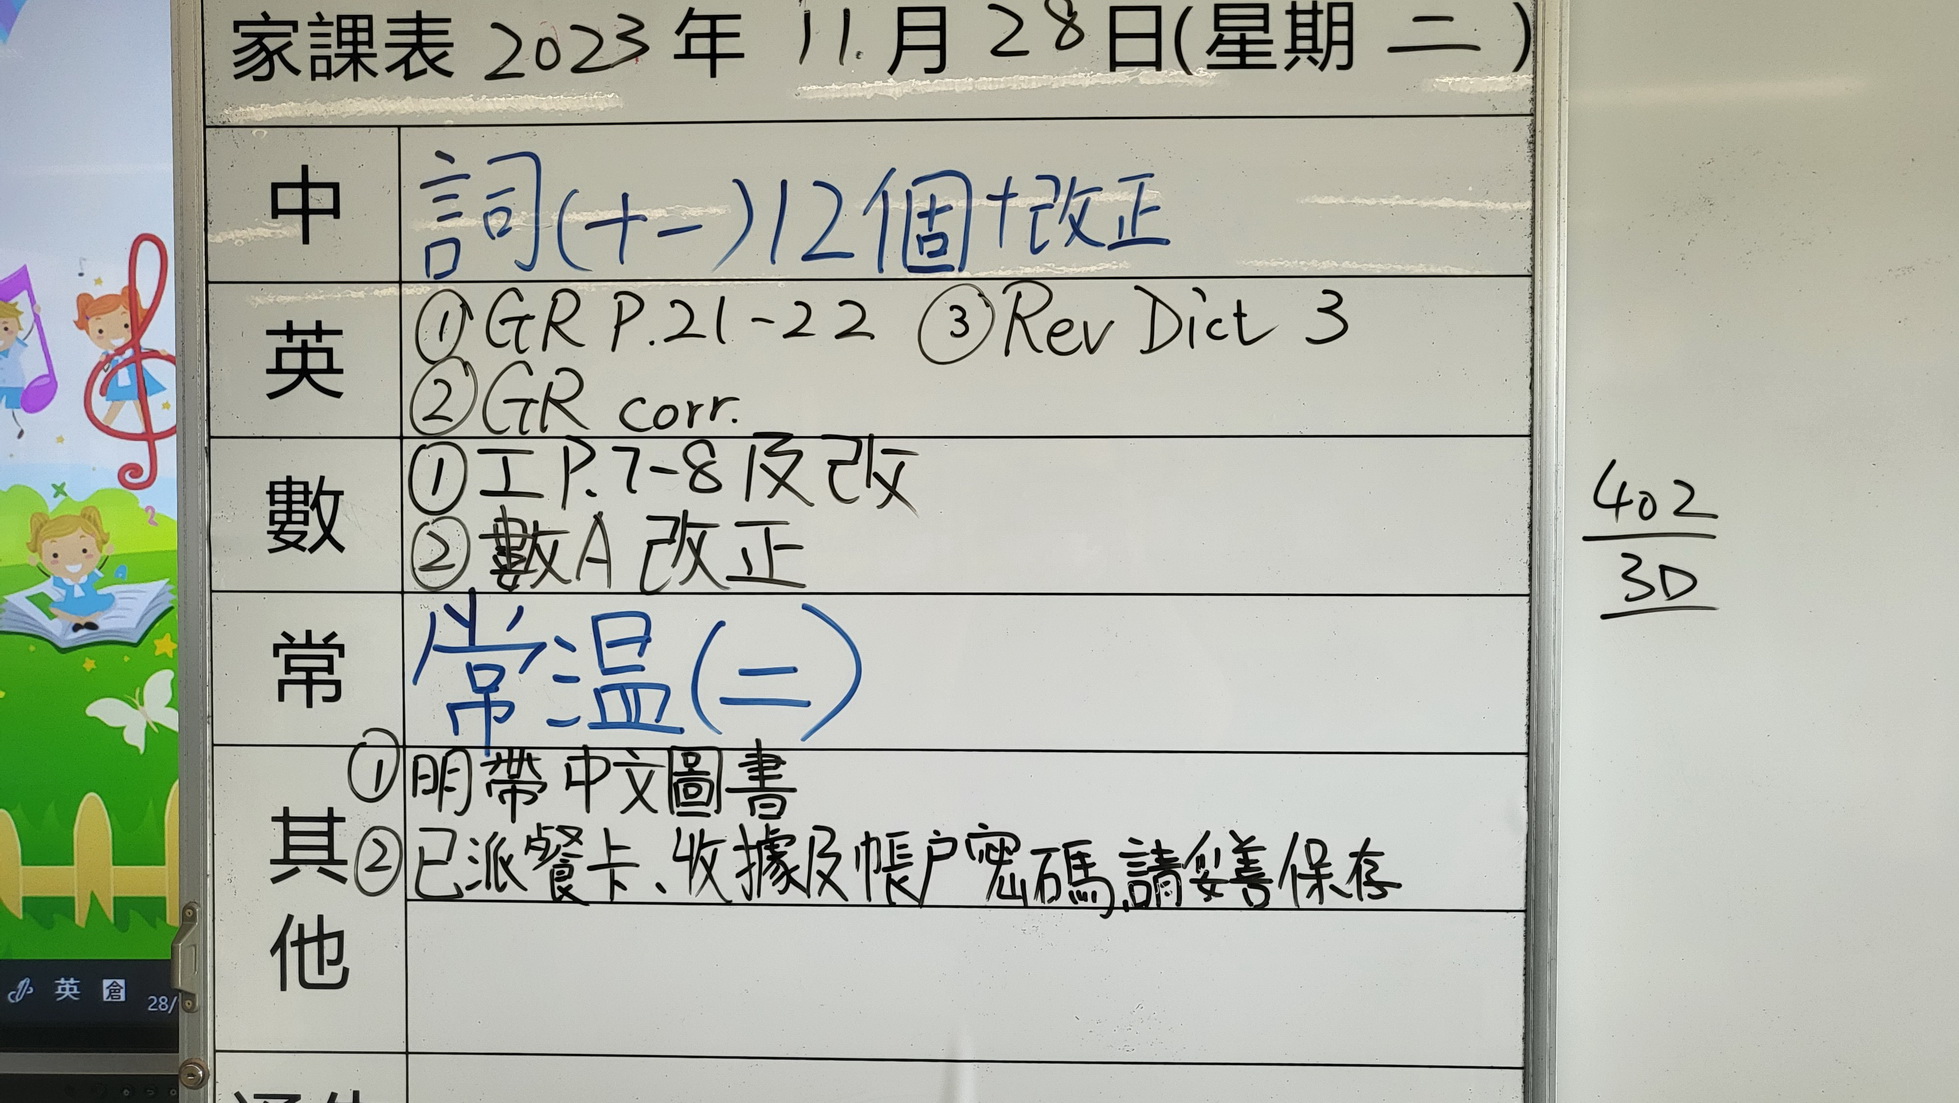 家課表 2023 年 11 月 28 日(星期 二)
中 詞(十一)12個+改正
英 ①GR P.21-22 ③Rev Dict 3
②GR corr.
數 ①工P.7-8及改
②數A 改正
常 常温(二)
其他 ①明帶中文圖書
②已派餐卡、收據及帳户密碼,請妥善保存
402
3D
英 倉
28/